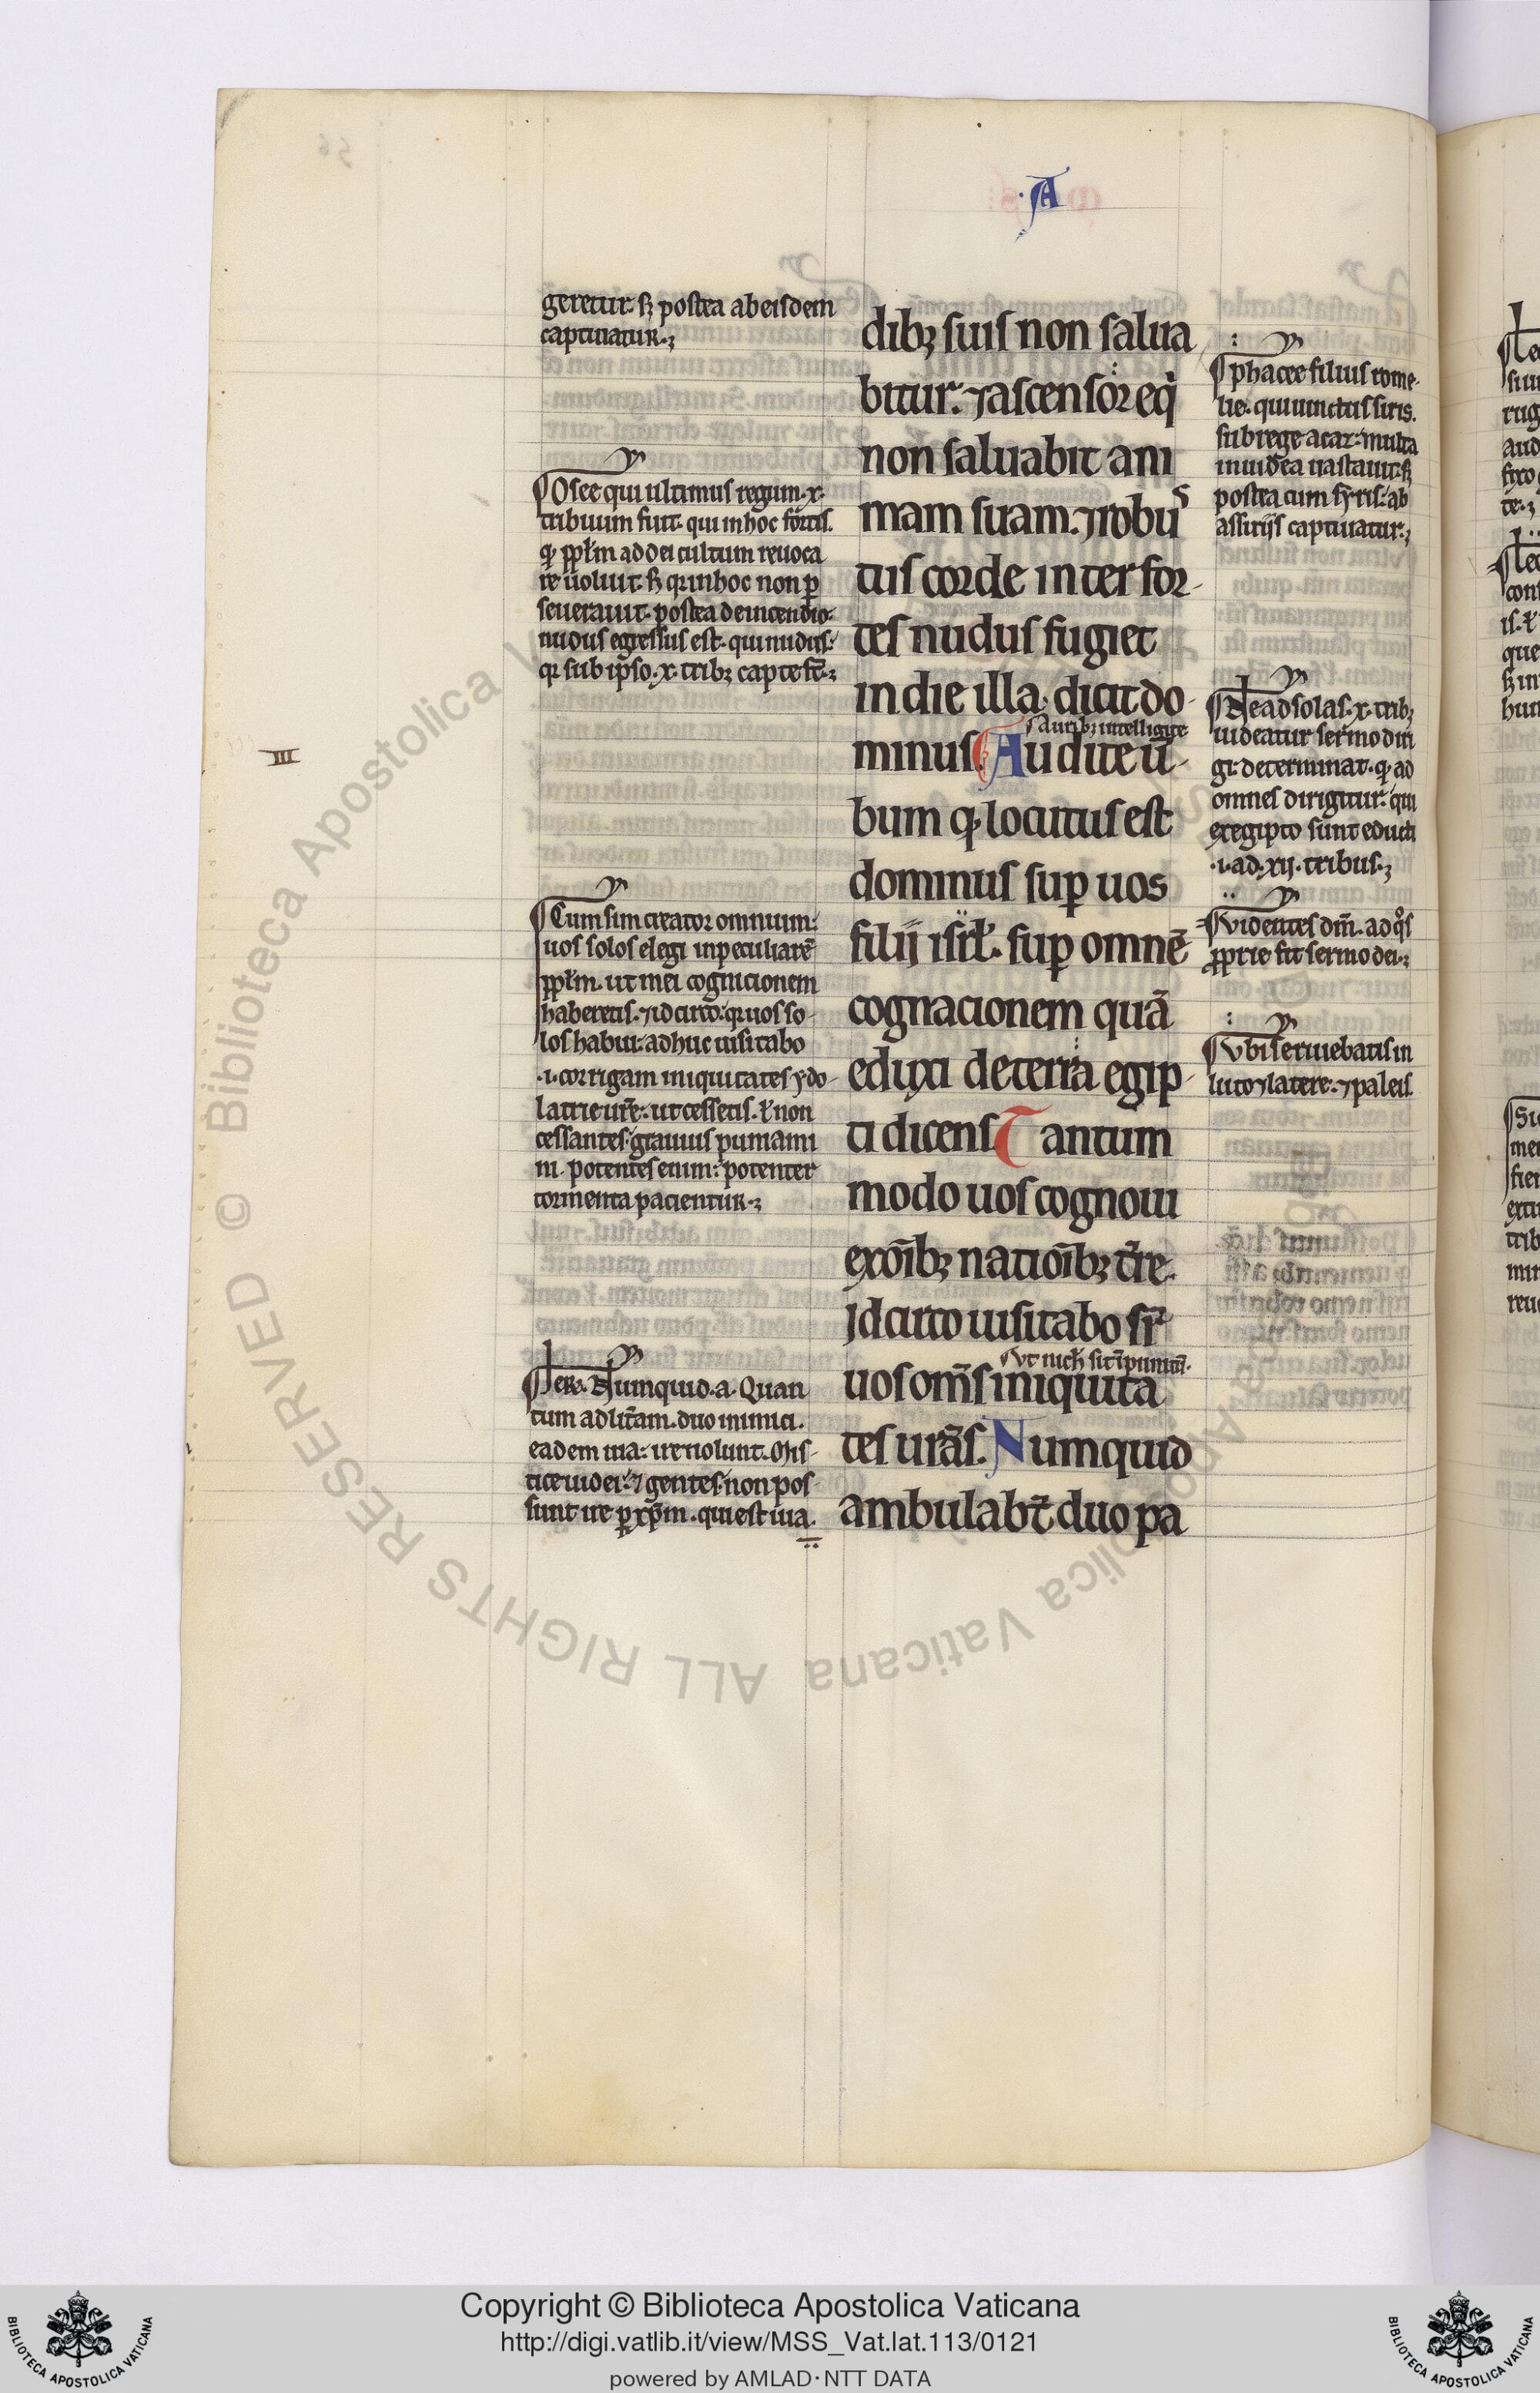 A
geretur. sꝫ postea ab eisdem
captiuatur.
Osee qui ultimus regum .x.
tribuum fuit. qui in hoc fortis.
qꝛ ppl̄m ad dei cultum reuoca
re uoluit. sꝫ qꝛ in hoc non ꝑ
seuerauit. postea de incendio
nudus egressus est. qui nudus.
qꝛ sub ipso .x. tribꝫ capte st̄.
III
Cum sim creator omnium.
uos solos elegi in peculiarē
ppl̄m. ut mei cognicionem
haberetis. ⁊ idcirco. qꝛ uos so
los habui. adhuc uisitabo
.i. corrigam iniquitates ydo
latrie ur̄e. ut cessetis. ł non
cessantes. grauius puniami
ni. potentes enim. potenter
tormenta pacientur.
Iero. Numquid .a. Quan
tum ad litt̄am. duo inimici.
eadem uia. ire nolunt. Mis
tice iudei. ⁊ gentes non pos
sunt ire ꝑ xp̄m. qui est uia.
dibꝫ suis non salua
bitur. ⁊ ascensor eqi
non saluabit ani
mam suam. ⁊ robus
tus corde inter for
tes nudus fugiet
in die illa. dicit do
auribꝫ intelligite
minus. Audite ū
bum qꝛ locutus est
dominus suꝑ uos
filij isrł. suꝑ omnē
cognacionem quā
eduxi de terra egip
ti dicens. Tantum
modo uos cognoui
ex om̄ibꝫ natiōibꝫ tr̄e.
Idcirco uisitabo sr̄
ut nich̄ sit ipunitū.
uos om̄s iniquita
tes ur̄as. Numquid
ambulabt̄ duo pa
phacee filius rome
lie. qui iunctus siris.
sub rege acaz. multa
in iudea uastauit. sꝫ
postea cum syris. ab
assirijs captiuatur.
Ne ad solas .x. tribꝫ
uideatur sermo diri
gi. determinat. qꝛ ad
omnes dirigitur. qui
ex egipto sunt educti
.i. ad .xij. tribus.
Videntes dm̄. ad qͦs
ꝓprie fit sermo dei.
Vbi seruiebatis in
luto ⁊ latere. ⁊ paleis.
Copyright © Biblioteca Apostolica Vaticana
http://digi.vatlib.it/view/MSS_Vat.lat.113/0121
powered by AMLAD · NTT DATA
BIBLIOTECA APOSTOLICA VATICANA
BIBLIOTECA APOSTOLICA VATICANA
© Biblioteca Apostolica Vaticana ALL RIGHTS RESERVED